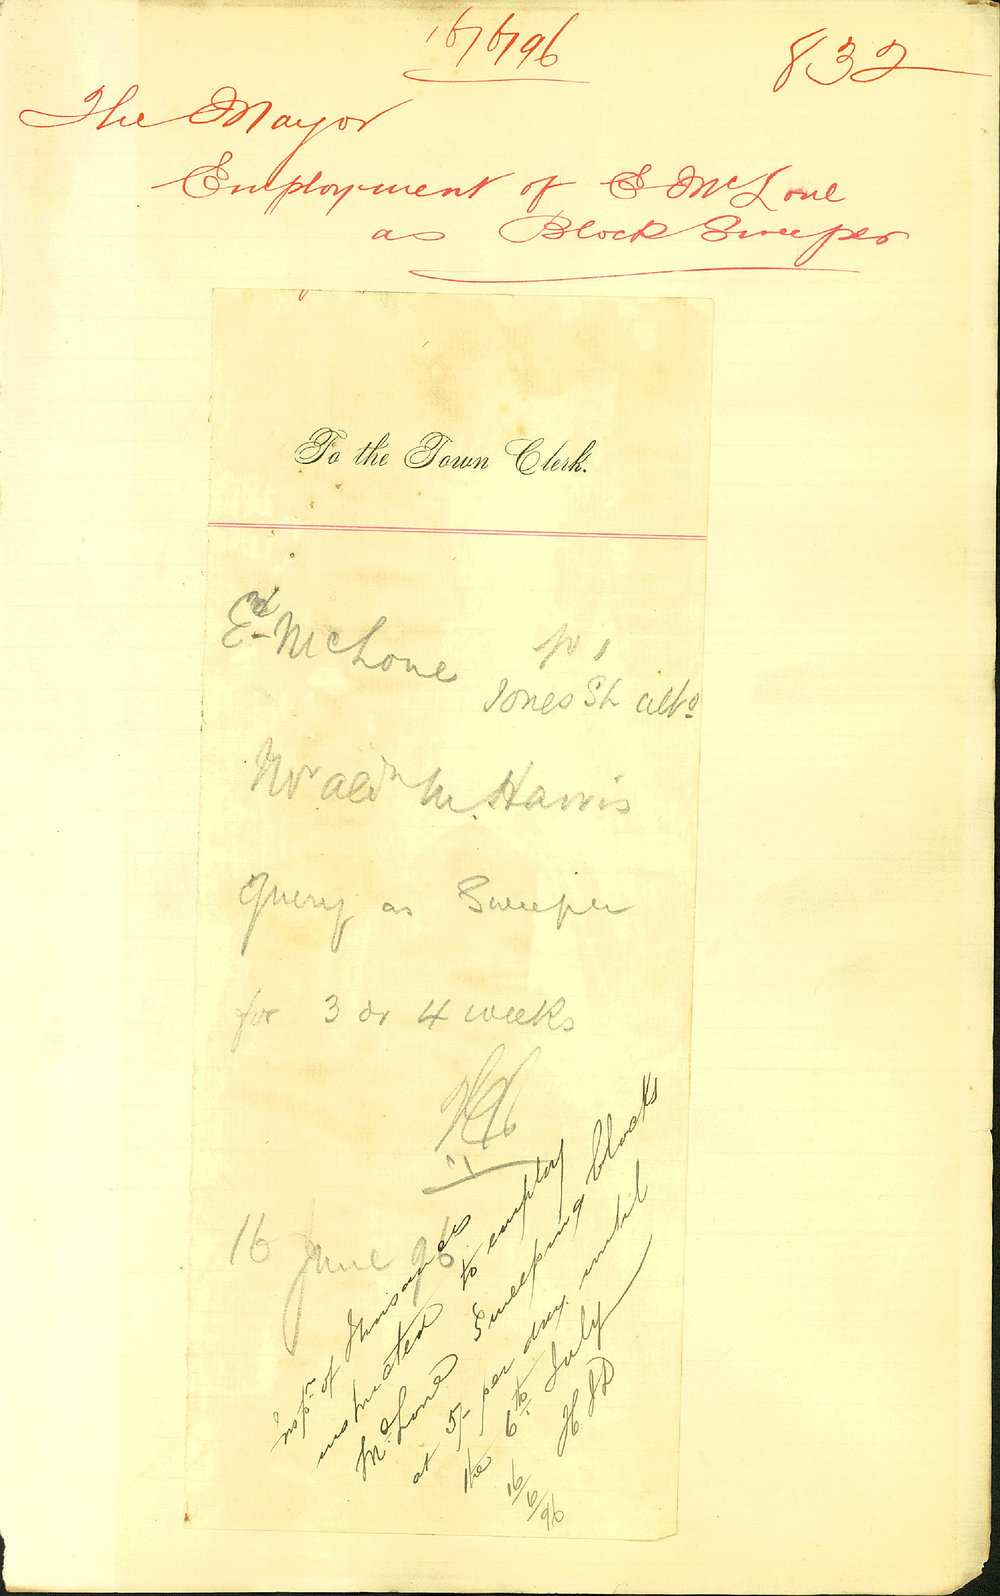 16/6/96
832
The Mayor
Employment of E McLone
as Block Sweeper
To the Town Clerk.
Ed McLone
Jones St
Ald M. Harris
Query as Sweeper
for 3 or 4 weeks
16 June 96
Inspr of Nuisances
instructed to employ
McLone Sweeping blocks
at 5/- per day until
the 6th July
HJD
16/6/96